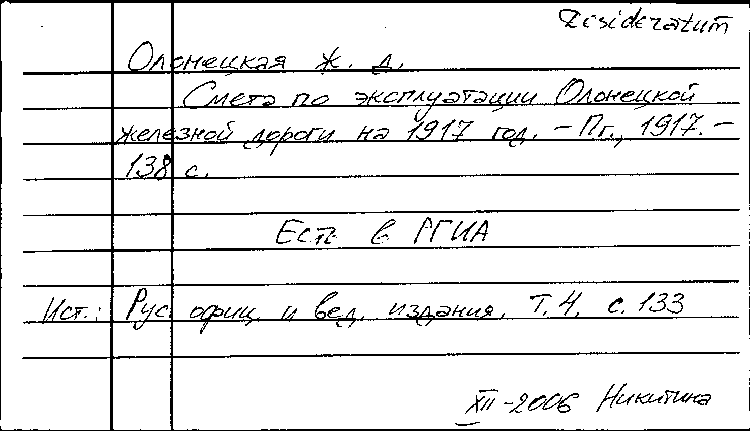 Desideratum
Олонецкая ж. д.
Смета по эксплуатации Олонецкой
железной дороги на 1917 год. – Пг., 1917. –
138 с.
Есть в РГИА
Ист.: Рус. офиц. и вед. издания, Т. 4, с. 133
XII-2006 Никитина